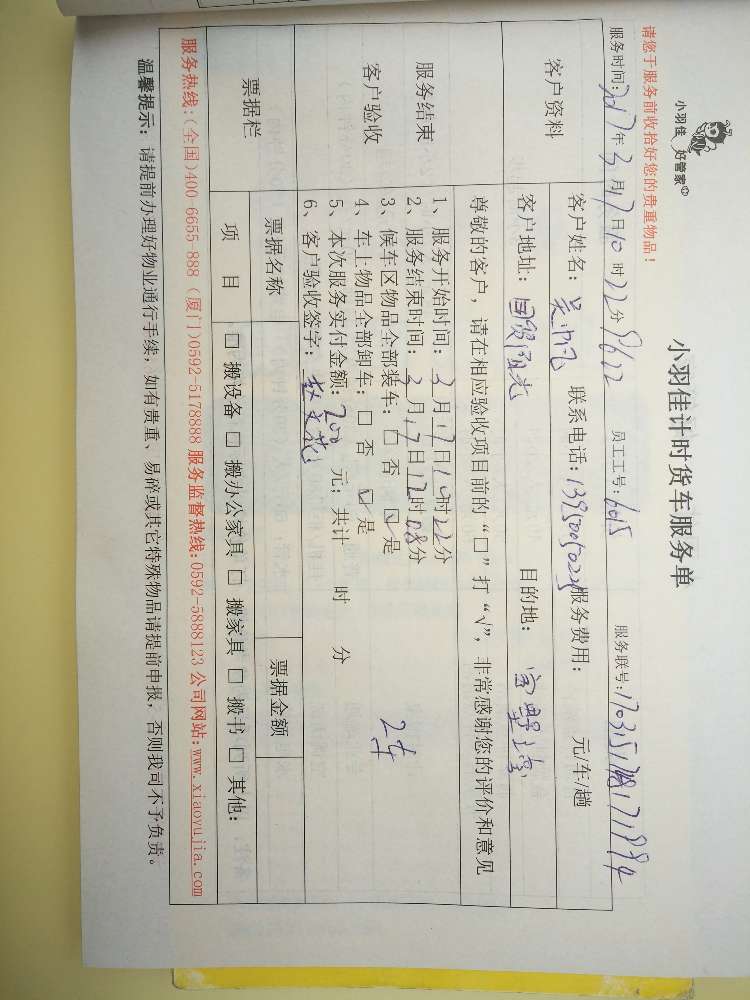 小羽佳 好管家
小羽佳计时货车服务单
请您于服务前收拾好您的贵重物品！
服务时间：2017年3月17日10时22分 员工工号：6015 服务联号：
客户资料
客户姓名： 联系电话： 服务费用： 元/车/趟
客户地址： 目的地：
服务结束
客户验收
尊敬的客户，请在相应验收项目前的“□”打“√”，非常感谢您的评价和意见
1、服务开始时间：3月17日10时22分
2、服务结束时间：3月17日12时08分
3、候车区物品全部装车：□ 否 ☑ 是
4、车上物品全部卸车：□ 否 ☑ 是
5、本次服务实付金额：200 元；共计 时 分
2车
6、客户验收签字：
票据栏
票据名称 票据金额
项 目 □ 搬设备 □ 搬办公家具 □ 搬家具 □ 搬书 □ 其他：
服务热线：(全国)400-6655-888 (厦门)0592-5178888 服务监督热线：0592-5888123 公司网站：www.xiaoyujia.com
温馨提示：请提前办理好物业通行手续；如有贵重、易碎或其它特殊物品请提前申报，否则我司不予负责。